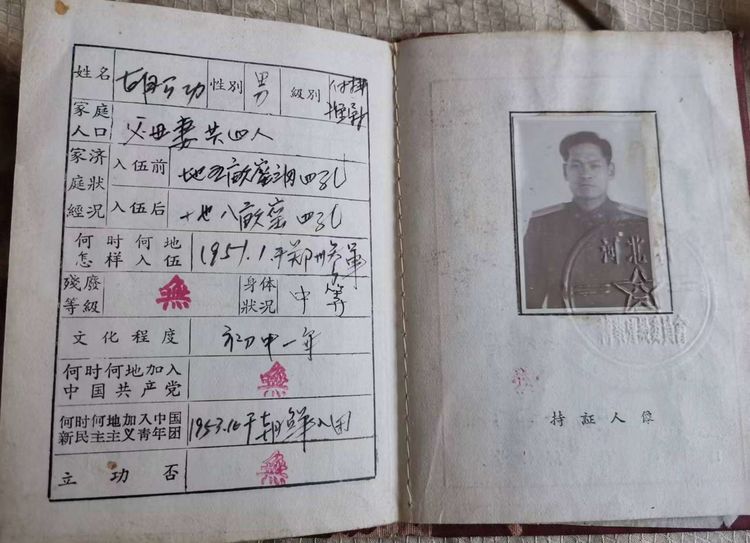 姓名 胡 功 性別 男 級別
家庭
人口 父母妻共四人
家济 入伍前 地五畝窑洞四孔
庭狀
經況 入伍后 土地八畝窑四孔
何时何地
怎样入伍 1951.1.于郑州参军
殘廢
等級 無 身体
狀况 中等
文化程度 初中一年
何时何地加入
中国共产党 無
何时何地加入中国
新民主主义青年团 1953.10于朝鲜入团
立功否 無
河北
持証人像